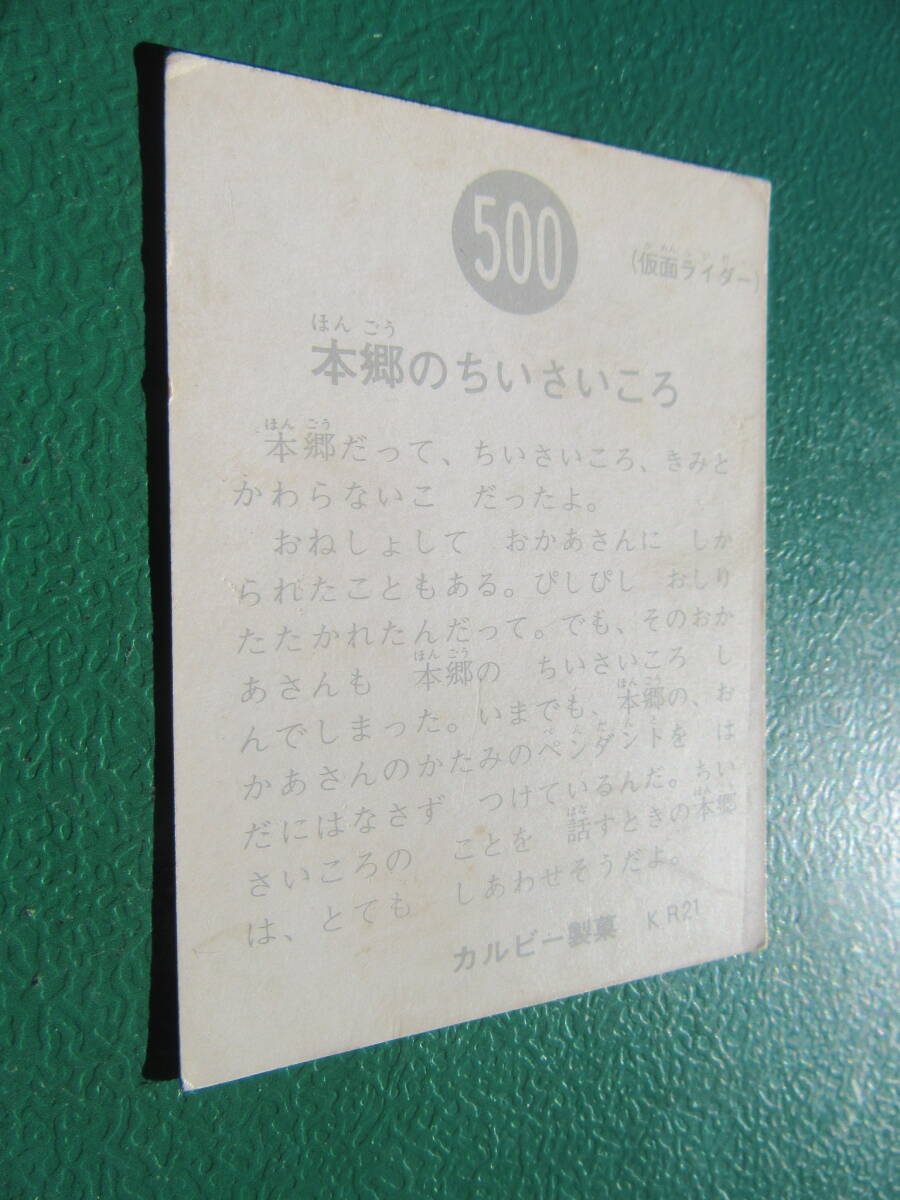 500
(仮面ライダー)
ほんごう
本郷のちいさいころ
ほんごう
本郷だって、ちいさいころ、きみと
かわらないこ　だったよ。
おねしょして　おかあさんに　しか
られたこともある。ぴしぴし　おしり
たたかれたんだって。でも、そのおか
ほんごう
あさんも　本郷の　ちいさいころ　し
ほんごう
んでしまった。いまでも、本郷の、お
ぺんだんと
かあさんのかたみのペンダントを　は
だにはなさず　つけているんだ。ちい
はな　ほんごう
さいころの　ことを　話すときの本郷
は、とても　しあわせそうだよ。
カルビー製菓　KR21